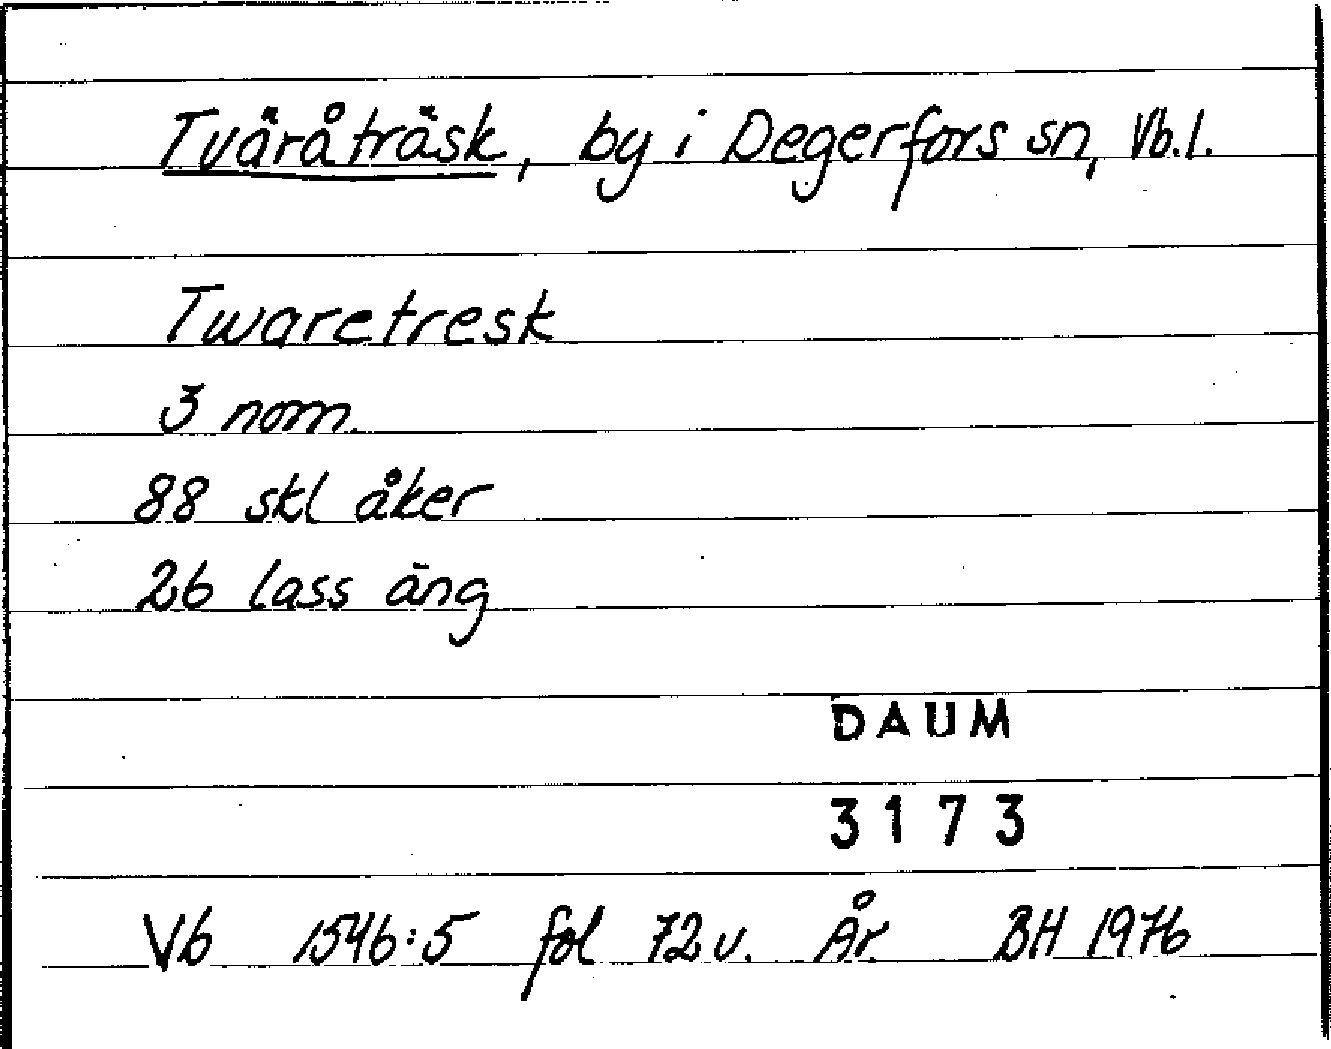 Tväråträsk, by i Degerfors sn, Vb.l.
Twaretresk
3 nom.
88 skl åker
26 lass äng
DAUM
3173
Vb 1546:5 fol 72 v. År. BH 1976